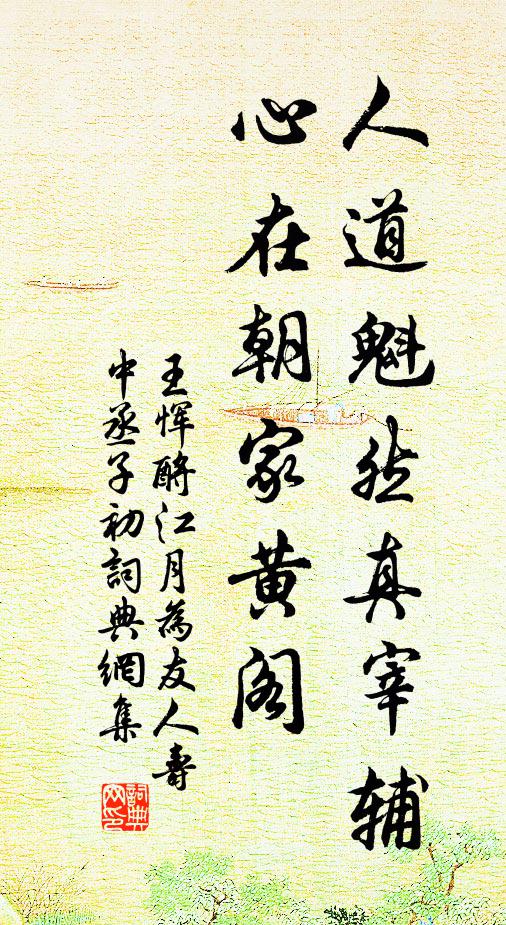 人道魁然真宰辅
心在朝家黄阁
王惲酹江月為友人壽
中丞子初詞典網集
詞典网印